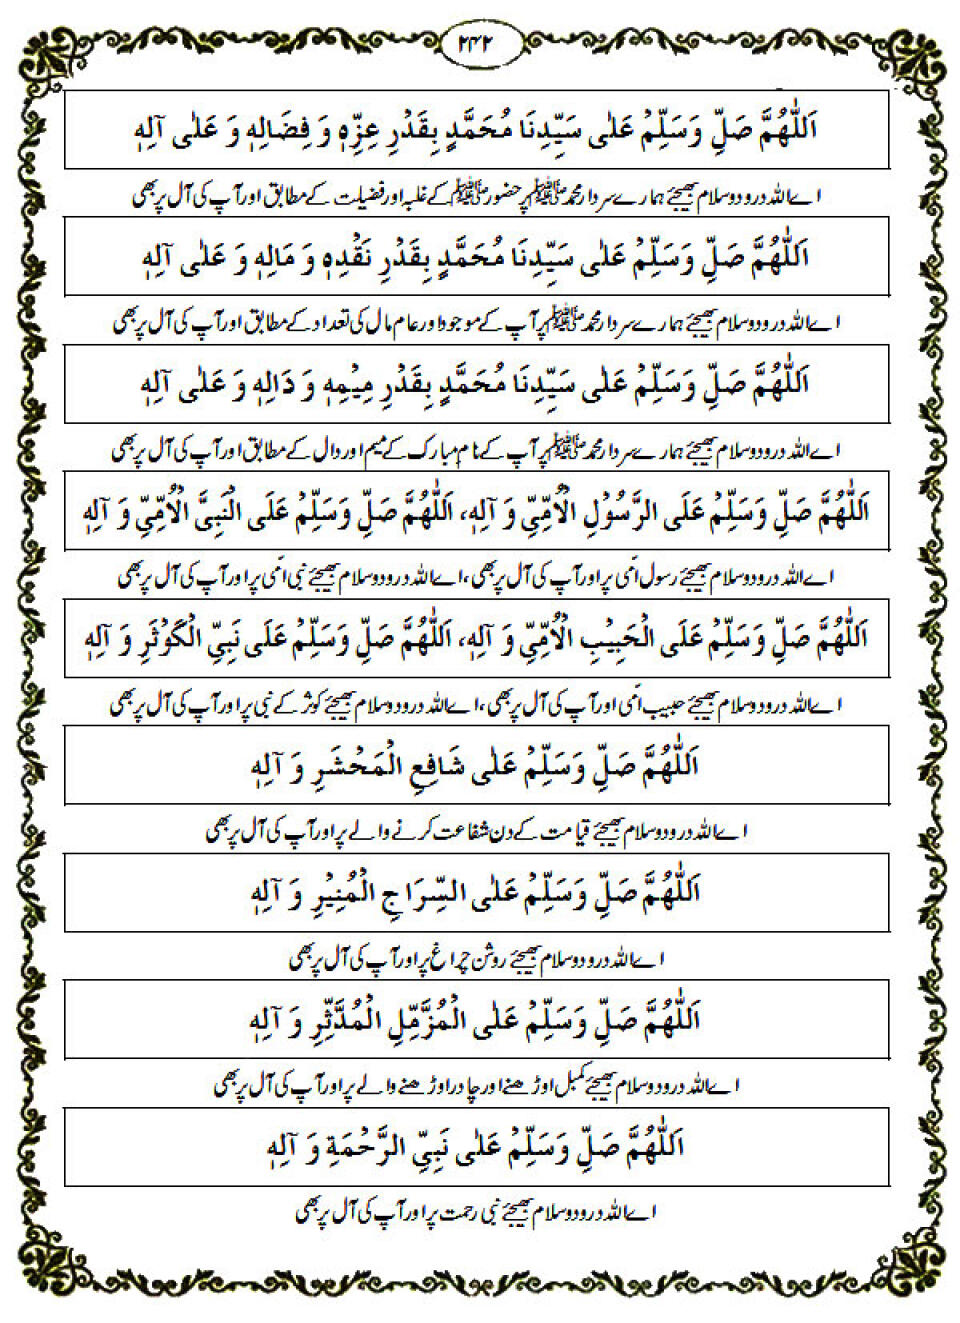 ۲۴۲
اَللّٰهُمَّ صَلِّ وَسَلِّمْ عَلٰى سَيِّدِنَا مُحَمَّدٍ بِقَدْرِ عِزِّهٖ وَ فِضَالِهٖ وَ عَلٰى آلِهٖ
اے اللہ درود و سلام بھیجئے ہمارے سردار محمد ﷺ پر حضور ﷺ کے غلبہ اور فضیلت کے مطابق اور آپ کی آل پر بھی
اَللّٰهُمَّ صَلِّ وَسَلِّمْ عَلٰى سَيِّدِنَا مُحَمَّدٍ بِقَدْرِ نَقْدِهٖ وَ مَالِهٖ وَ عَلٰى آلِهٖ
اے اللہ درود و سلام بھیجئے ہمارے سردار محمد ﷺ پر آپ کے موجود اور عام مال کی تعداد کے مطابق اور آپ کی آل پر بھی
اَللّٰهُمَّ صَلِّ وَسَلِّمْ عَلٰى سَيِّدِنَا مُحَمَّدٍ بِقَدْرِ مِيْمِهٖ وَ دَالِهٖ وَ عَلٰى آلِهٖ
اے اللہ درود و سلام بھیجئے ہمارے سردار محمد ﷺ پر آپ کے نام مبارک کے میم اور دال کے مطابق اور آپ کی آل پر بھی
اَللّٰهُمَّ صَلِّ وَسَلِّمْ عَلَى الرَّسُوْلِ الْاُمِّىِّ وَ آلِهٖ، اَللّٰهُمَّ صَلِّ وَسَلِّمْ عَلَى النَّبِىِّ الْاُمِّىِّ وَ آلِهٖ
اے اللہ درود و سلام بھیجئے رسول امّی پر اور آپ کی آل پر بھی، اے اللہ درود و سلام بھیجئے نبی امّی پر اور آپ کی آل پر بھی
اَللّٰهُمَّ صَلِّ وَسَلِّمْ عَلَى الْحَبِيْبِ الْاُمِّىِّ وَ آلِهٖ، اَللّٰهُمَّ صَلِّ وَسَلِّمْ عَلٰى نَبِىِّ الْكَوْثَرِ وَ آلِهٖ
اے اللہ درود و سلام بھیجئے حبیب امّی اور آپ کی آل پر بھی، اے اللہ درود و سلام بھیجئے کوثر کے نبی پر اور آپ کی آل پر بھی
اَللّٰهُمَّ صَلِّ وَسَلِّمْ عَلٰى شَافِعِ الْمَحْشَرِ وَ آلِهٖ
اے اللہ درود و سلام بھیجئے قیامت کے دن شفاعت کرنے والے پر اور آپ کی آل پر بھی
اَللّٰهُمَّ صَلِّ وَسَلِّمْ عَلٰى السِّرَاجِ الْمُنِيْرِ وَ آلِهٖ
اے اللہ درود و سلام بھیجئے روشن چراغ پر اور آپ کی آل پر بھی
اَللّٰهُمَّ صَلِّ وَسَلِّمْ عَلٰى الْمُزَّمِّلِ الْمُدَّثِّرِ وَ آلِهٖ
اے اللہ درود و سلام بھیجئے کمبل اوڑھنے اور چادر اوڑھنے والے پر اور آپ کی آل پر بھی
اَللّٰهُمَّ صَلِّ وَسَلِّمْ عَلٰى نَبِىِّ الرَّحْمَةِ وَ آلِهٖ
اے اللہ درود و سلام بھیجئے نبی رحمت پر اور آپ کی آل پر بھی